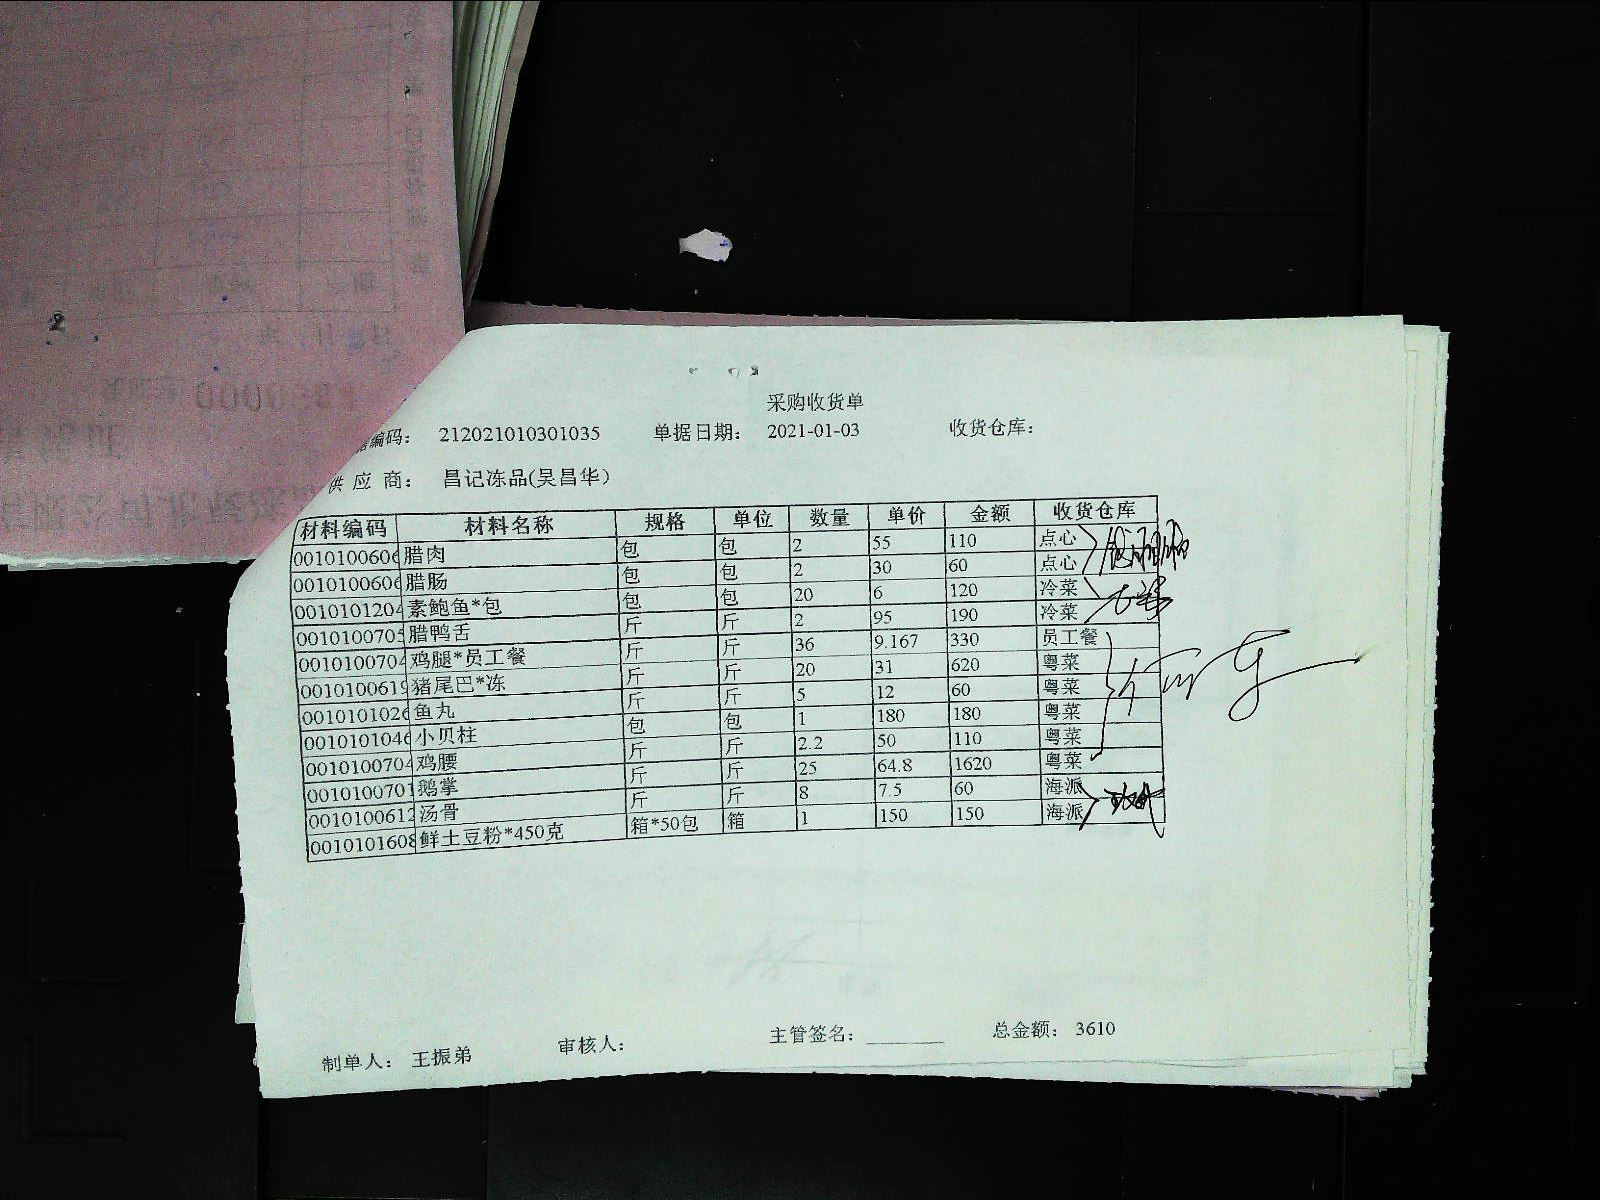 采购收货单
编码: 212021010301035 单据日期: 2021-01-03 收货仓库:
供应商: 昌记冻品(吴昌华)
材料编码 材料名称 规格 单位 数量 单价 金额 收货仓库
0010100606 腊肉 包 包 2 55 110 点心
0010100606 腊肠 包 包 2 30 60 点心
0010101204 素鲍鱼*包 包 包 20 6 120 冷菜
0010100705 腊鸭舌 斤 斤 2 95 190 冷菜
0010100704 鸡腿*员工餐 斤 斤 36 9.167 330 员工餐
0010100619 猪尾巴*冻 斤 斤 20 31 620 粤菜
0010101026 鱼丸 斤 斤 5 12 60 粤菜
0010101046 小贝柱 包 包 1 180 180 粤菜
0010100704 鸡腰 斤 斤 2.2 50 110 粤菜
0010100701 鹅掌 斤 斤 25 64.8 1620 粤菜
0010100612 汤骨 斤 斤 8 7.5 60 海派
0010101608 鲜土豆粉*450克 箱*50包 箱 1 150 150 海派
制单人: 王振弟 审核人: 主管签名: 总金额: 3610